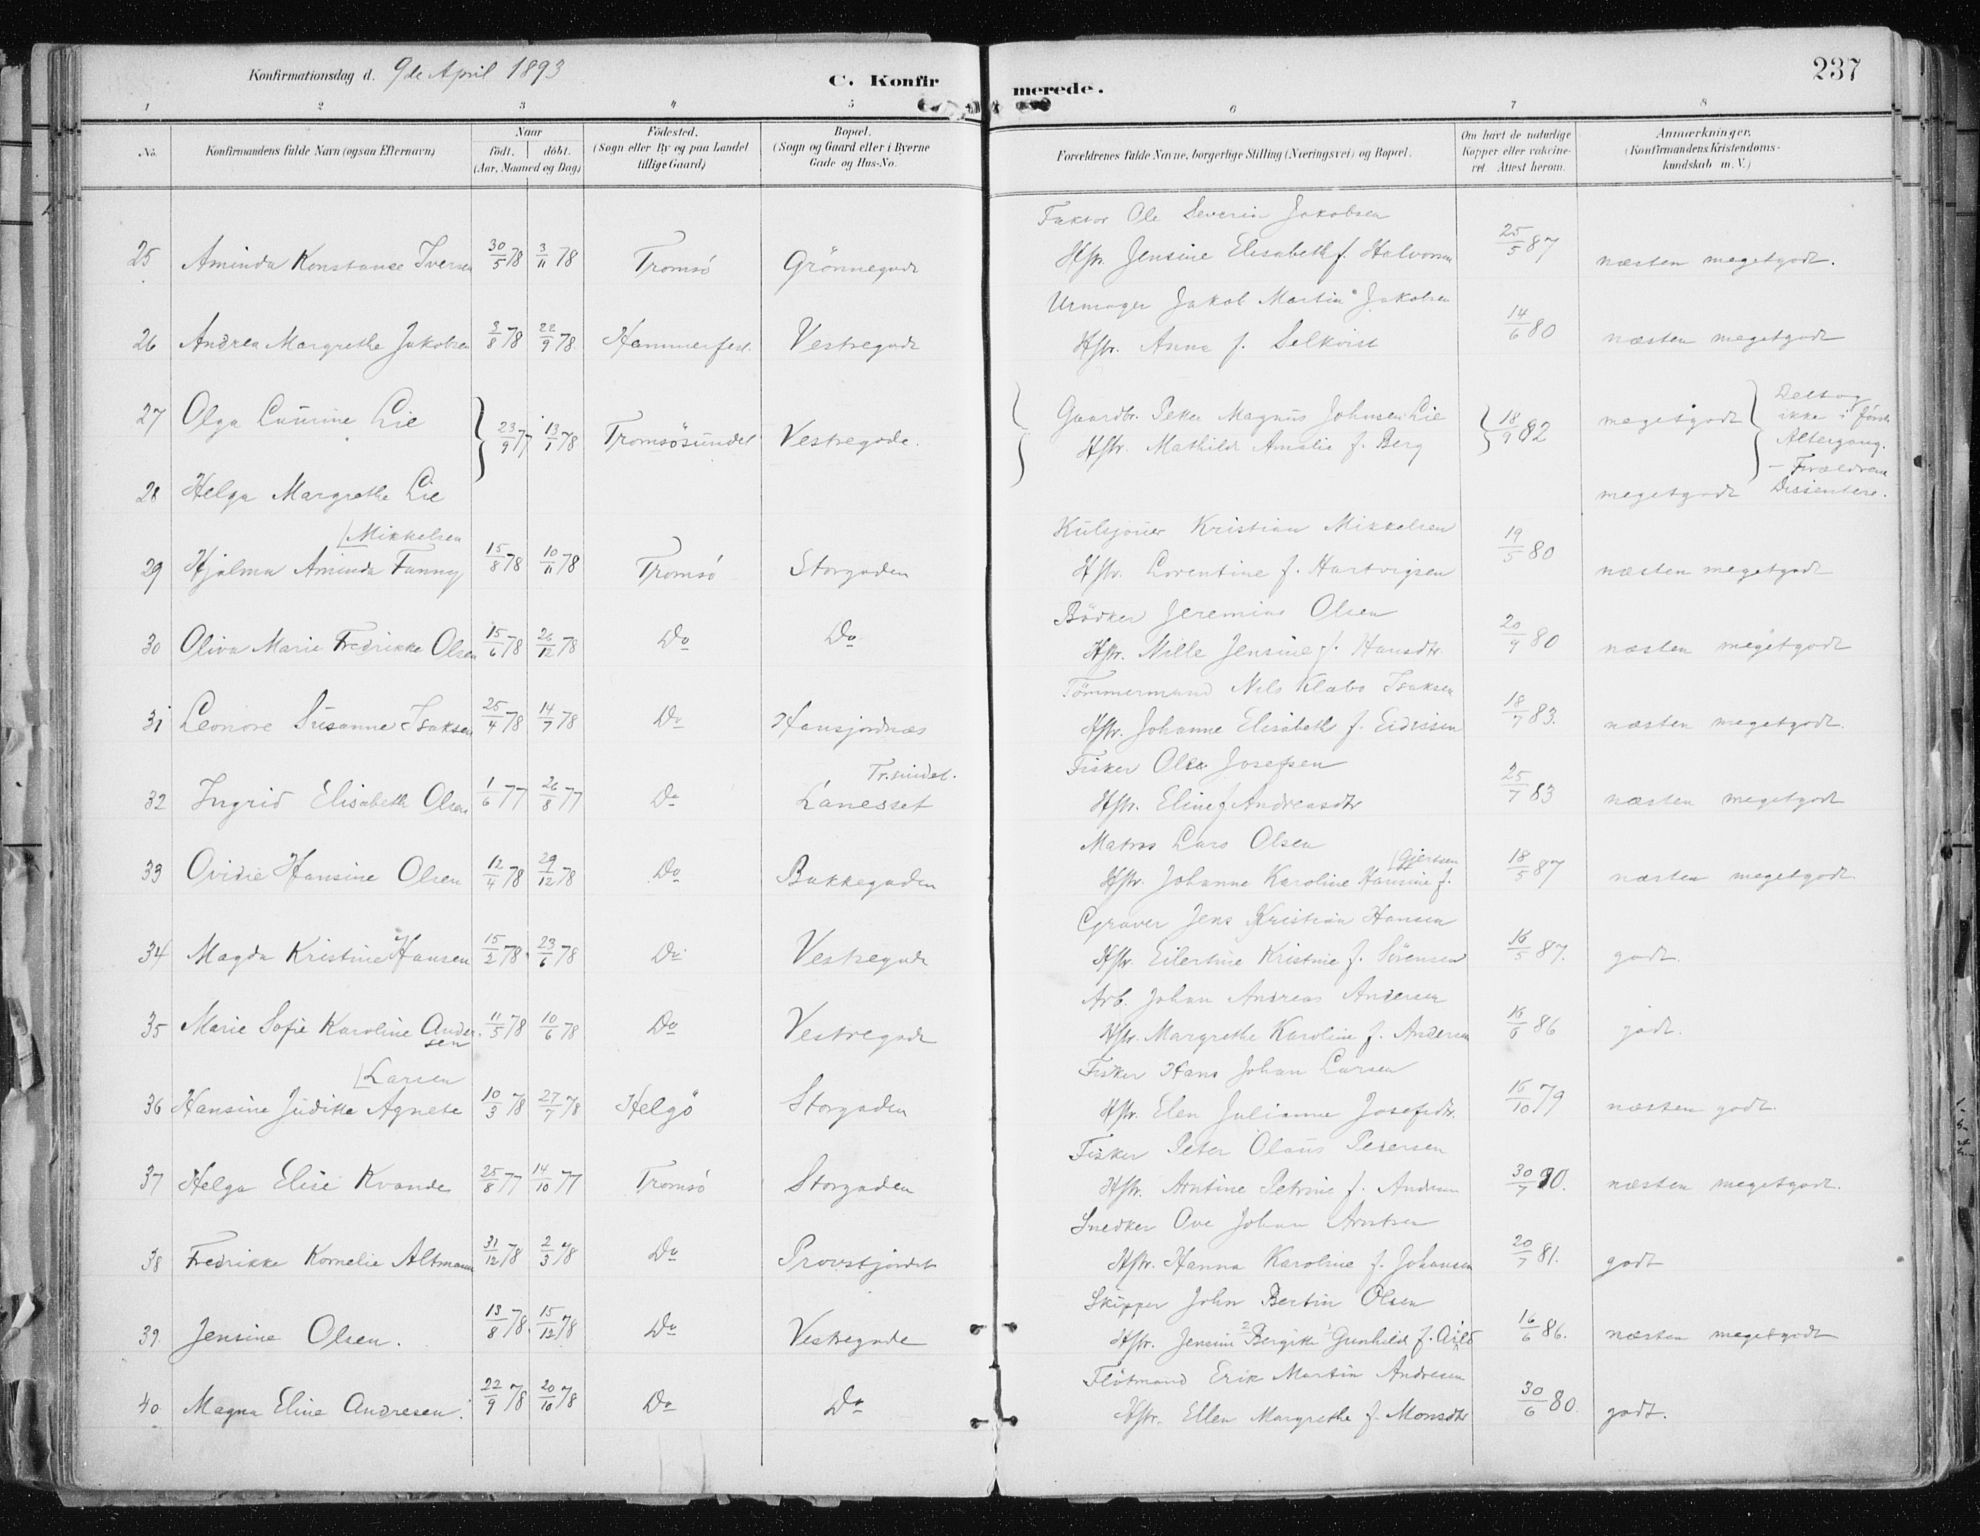 Konfirmationsdag d. 9de April 1893
C. Konfirmerede.
237
1 2 3 4 5 6 7 8
No. Konfirmandens fulde Navn (ogsaa Efternavn) Naar födt. döbt. (Aar, Maaned og Dag) Födested. (Sogn eller By og paa Landet tillige Gaard) Bopæl. (Sogn og Gaard eller i Byerne Gade og Hus-No. Forældrenes fulde Navne, borgerlige Stilling (Næringsvei) og Bopæl. Om havt de naturlige Kopper eller vakcineret. Attest herom. Anmærkninger. (Konfirmandens Kristendomskundskab m. V.)
Faktor Ole Severin Jakobsen
25 Aminda Konstanse Iversen 30/5 78 3/11 78 Tromsö Grönnegade Hstr. Jensine Elisabeth f. Halvorsen 25/5 87 næsten megetgodt.
Urmager Jakob Martin Jakobsen
26 Andrea Margrethe Jakobsen 3/8 78 22/9 78 Hammerfest. Vestregade Hstr. Anna f. Selkvist 14/6 80 næsten megetgodt
27 Olga Laurine Lie 23/9 77 13/1 78 Tromsösundet Vestregade. Gaardbr. Peter Magnus Johnsen Lie 18/9 82 megetgodt Deltog ikke i første Altergang.
Hstr. Mathilde Amalie f. Berg
28 Helga Margrethe Lie megetgodt – Forældrene Dissentere.
Mikkelsen Kulsjouer Kristian Mikkelsen
29 Hjalma Aminda Fanny 15/8 78 10/11 78 Tromsö Storgaden Hstr. Lorentine f. Hartvigsen 19/5 80 næsten megetgodt
Bödker Jeremias Olsen
30 Oliva Marie Fredrikke Olsen 15/6 78 26/12 78 Do Do Hstr. Nille Jensine f. Hansdtr. 20/9 80 næsten megetgodt
Tömmermand Nils Klæbo Isaksen
31 Leonore Susanne Isaksen 25/4 78 14/7 78 Do Hansjordnæs Hstr. Johanne Elisabeth f. Eidissen 18/7 83. næsten megetgodt.
Tr.sundet. Fisker Ole Josefsen
32 Ingrid Elisabeth Olsen 1/6 77 26/8 77 Do Lanesset Hstr. Eline f Andreasdtr 25/7 83 næsten megetgodt
Matros Lars Olsen
33 Ovidie Hansine Olsen 12/4 78 29/12 78 Do Bakkegaden Hstr. Johanna Karoline Hansine f. Gjertsen 18/5 87 næsten megetgodt.
Cgraver Jens Kristian Hansen
34 Magda Kristine Hansen 15/2 78 23/6 78 Do Vestregade Hstr. Eilertine Kristine f. Sörensen 16/5 87. godt.
Arb. Johan Andreas Andersen
35 Marie Sofie Karoline Andersen 11/5 78 10/6 78 Do Vestregade Hstr. Margrethe Karoline f. Andersen 16/6 86 godt.
Larsen Fisker Hans Johan Larsen
36 Hansine Judithe Agnete 10/3 78 27/7 78 Helgö Storgaden Hstr. Elen Julianne Josefsdtr. 16/10 79 næsten godt.
Fisker Peter Olaus Pedersen
37 Helga Elise Kvande 25/8 77 14/10 77 Tromsö Storgaden Hstr. Arntine Petrine f. Andersen 30/7 80. næsten megetgodt.
Snedker Ove Johan Arntsen
38 Fredrikke Kornelie Altmann 31/12 78 2/3 78 Do Provstjordet Hstr. Hanna Karoline f. Johansen 20/7 81. godt
Skipper John Bertin Olsen
39. Jensine Olsen. 13/8 78. 15/12 78 Do Vestregade Hstr. Jensine Bergitte Gunhild f. 16/6 86. næsten megetgodt
Flötmand Erik Martin Andresen
40 Magna Eline Andresen. 22/9 78 20/10 78 Do Do Hstr. Ellen Margrethe f. Monsdtr 30/6 80. godt.